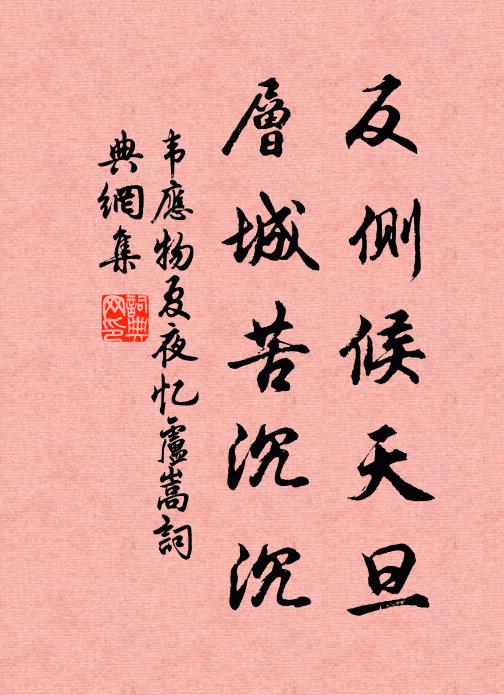 反側候天旦
層城苦沉沉
韦應物夏夜忆盧嵩詞
典網集
詞典网印